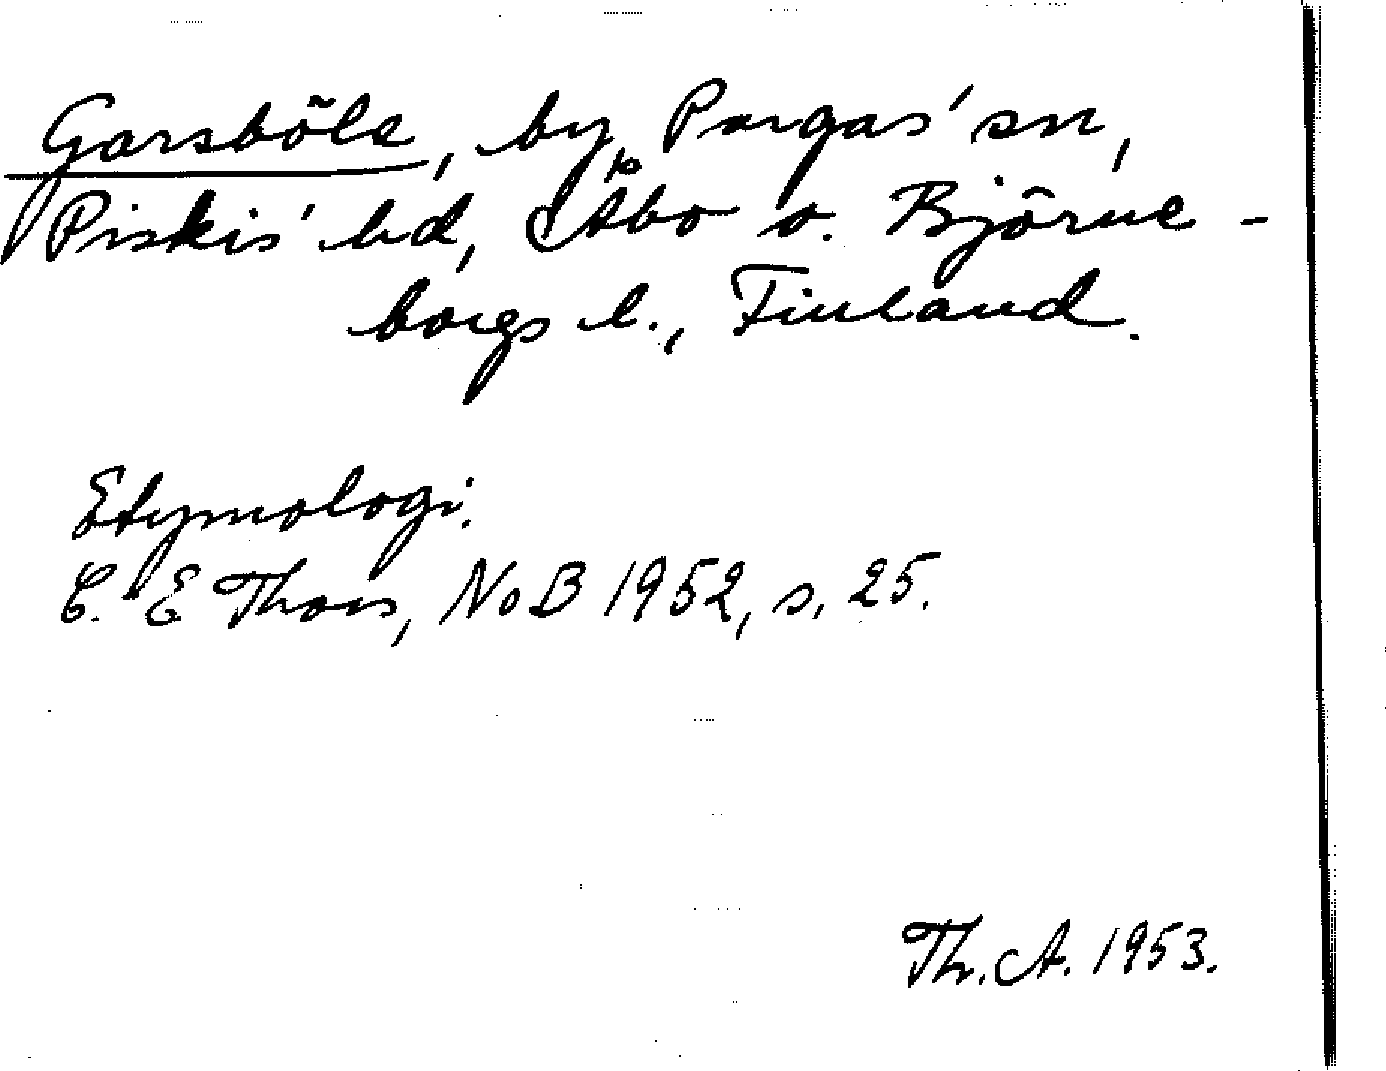 Garsböle, by, Pargas' sn,
Piskis' hd, Åbo o. Björne-
borgs l., Finland.
Etymologi.
C. E Thors, NoB 1952, s. 25.
Th. A. 1953.